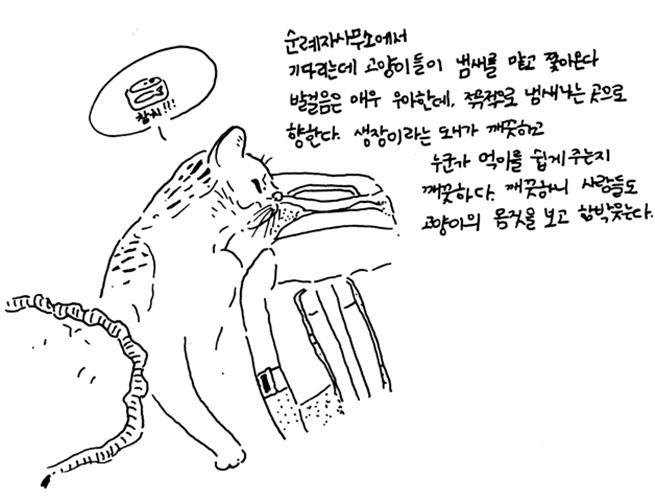 순례자사무소에서
기다리는데 고양이들이 냄새를 맡고 쫓아온다
발걸음은 매우 우아한데, 목적으로 냄새나는 곳으로
향한다. 생장이라는 도시가 깨끗하고
누군가 먹이를 쉽게 주는지
깨끗하다. 깨끗하니 사람들도
고양이의 몸짓을 보고 함박웃는다.
참치!!!